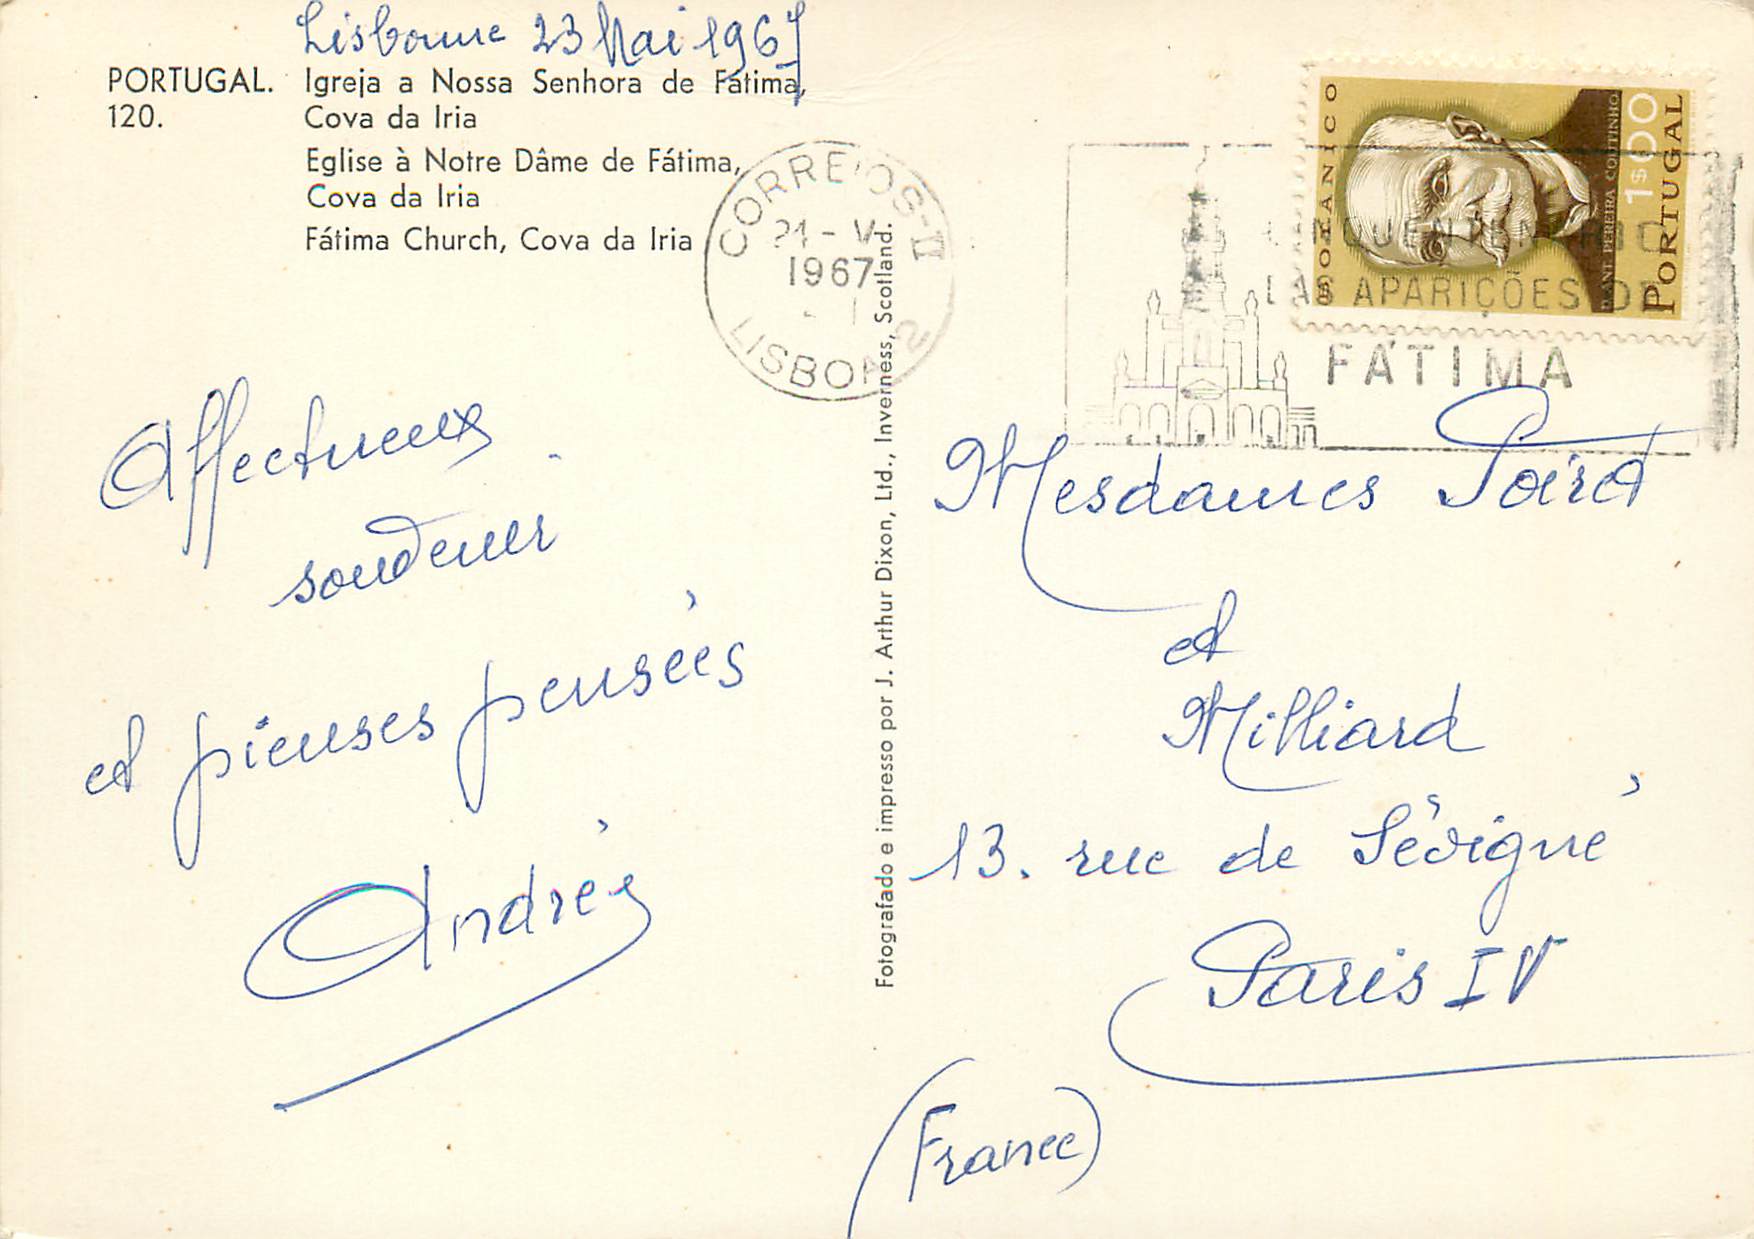 Lisbonne 23 Mai 1967
PORTUGAL. Igreja a Nossa Senhora de Fátima,
120. Cova da Iria
Eglise à Notre Dâme de Fátima,
Cova da Iria
Fátima Church, Cova da Iria
CORREIOS-
24 - V
1967
LISBOA 2
BOTÂNICO
D. ANT. PEREIRA COUTINHO
1$00
PORTUGAL
DAS APARIÇÕES DE
FÁTIMA
Affectueux
souvenir
et pieuses pensées
Fotografado e impresso por J. Arthur Dixon, Ltd., Inverness, Scotland.
Mesdames Poiret
et
Milliard
13. rue de Sévigné
Paris IV
(France)